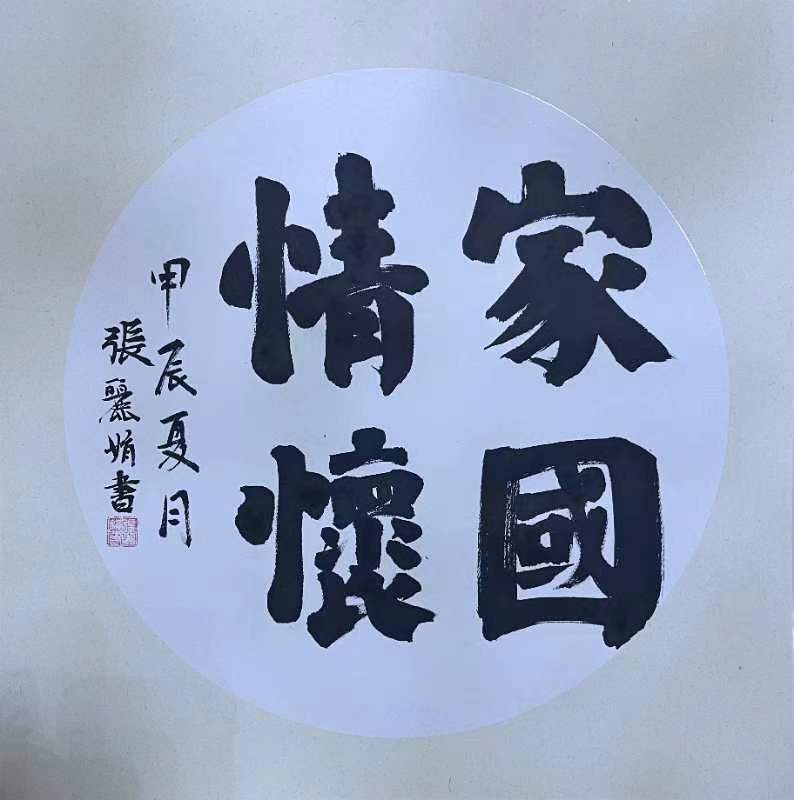 家國
情懷
甲辰夏月
張麗娟書